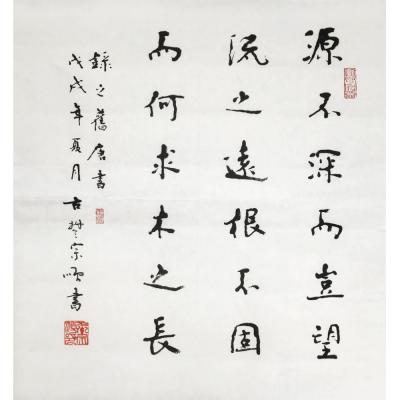 源不深而豈望
流之遠根不固
而何求木之長
錄之舊唐書
戊戌年夏月古宗順書